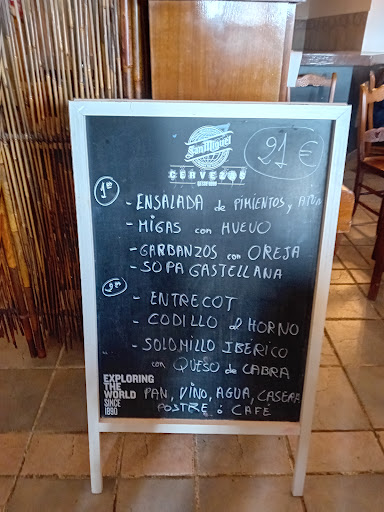 San Miguel
CERVEZAS
21 €
1er
- ENSALADA de PIMIENTOS y ATÚN
- MIGAS con HUEVO
- GARBANZOS con OREJA
- SOPA CASTELLANA
2º
- ENTRECOT
- CODILLO al HORNO
- SOLOMILLO IBERICO
con QUESO de CABRA
PAN, VINO, AGUA, CASERA
POSTRE ó CAFÉ
EXPLORING
THE
WORLD
SINCE
1890